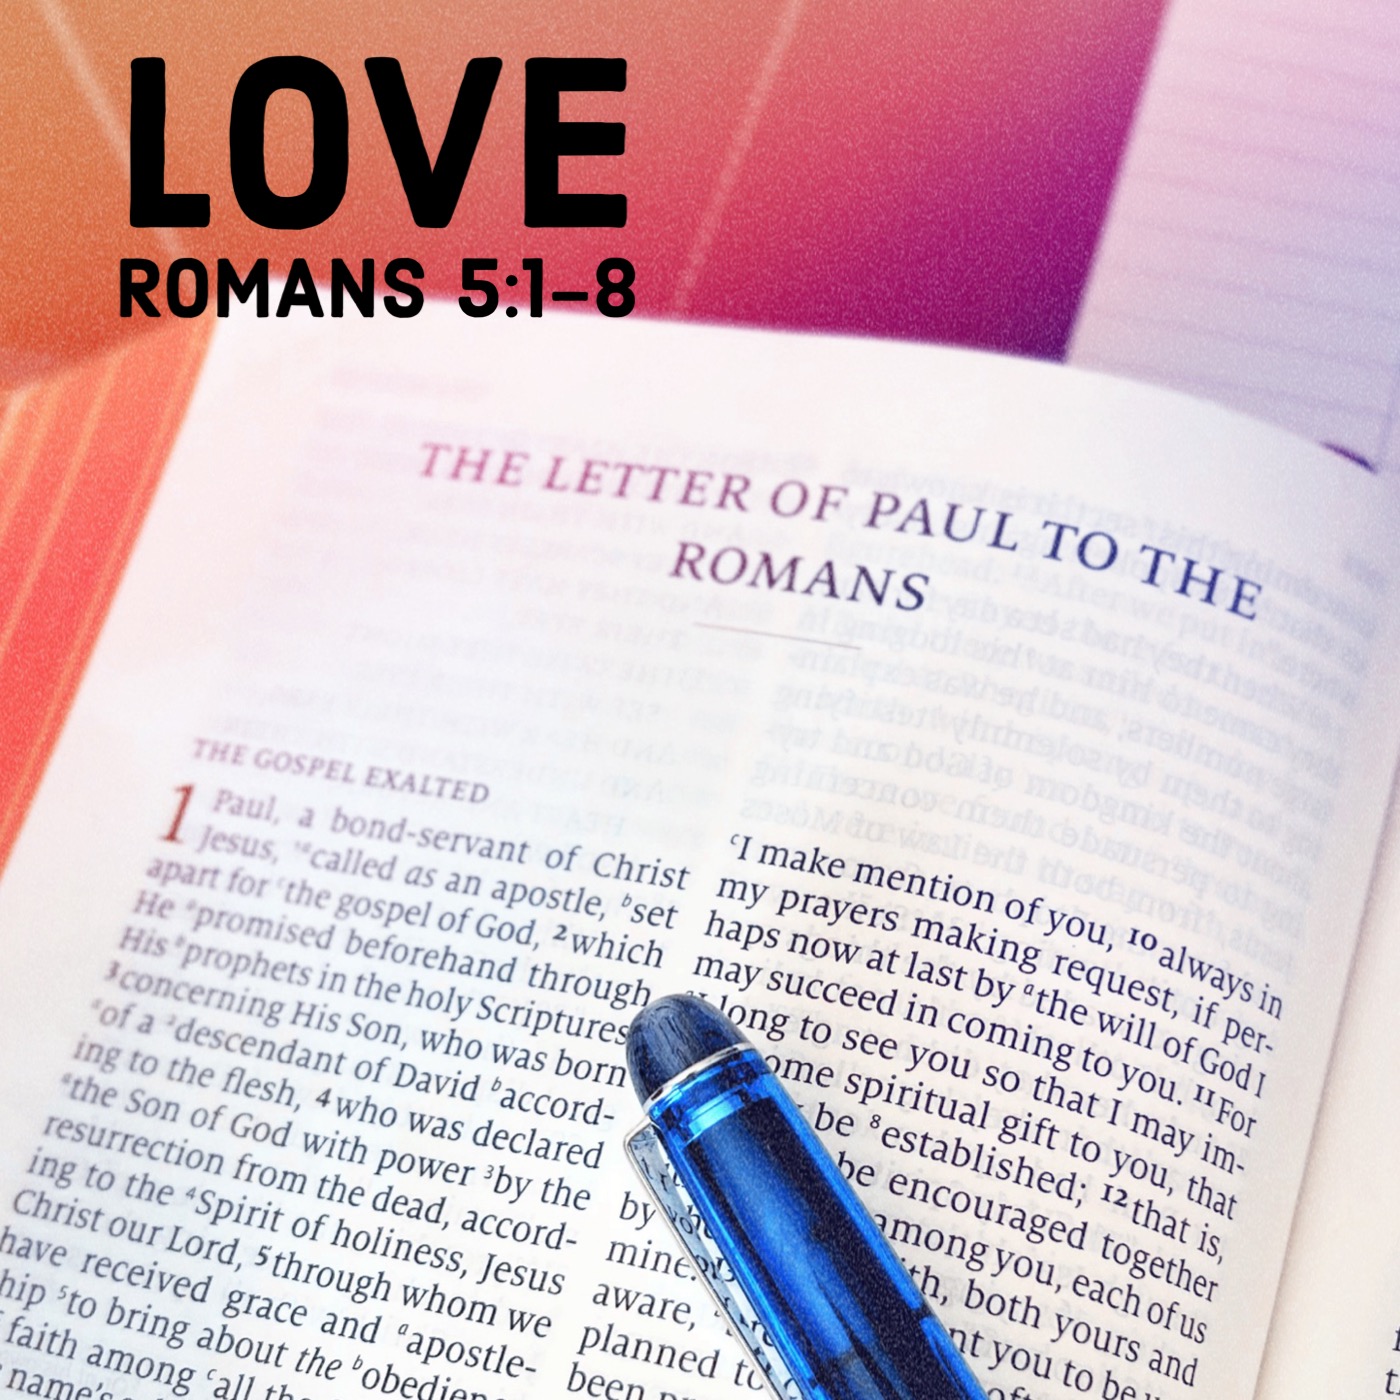 LOVE
ROMANS 5:1–8
THE LETTER OF PAUL TO THE
ROMANS
THE GOSPEL EXALTED
1 Paul, a bond-servant of Christ
Jesus, called as an apostle, ᵇset
apart for ᶜthe gospel of God, 2which
He ᵃpromised beforehand through
His ᵇprophets in the holy Scriptures
3concerning His Son, who was born
ᵃof a ²descendant of David ᵇaccord-
ing to the flesh, 4who was declared
ᵃthe Son of God with power ³by the
resurrection from the dead, accord-
ing to the ⁴Spirit of holiness, Jesus
Christ our Lord, 5through whom we
have received grace and ᵃapostle-
ship ⁵to bring about the ᵇobedien
faith among ᶜall
name's
ᶜI make mention of you, 10always in
my prayers making request, if per-
haps now at last by ᵃthe will of God I
may succeed in coming to you. 11For
long to see you so that I may im-
some spiritual gift to you, that
be ⁸established; 12that is,
be encouraged together
among you, each of us
both yours and
mine.
you to be
aware,
planned to
been